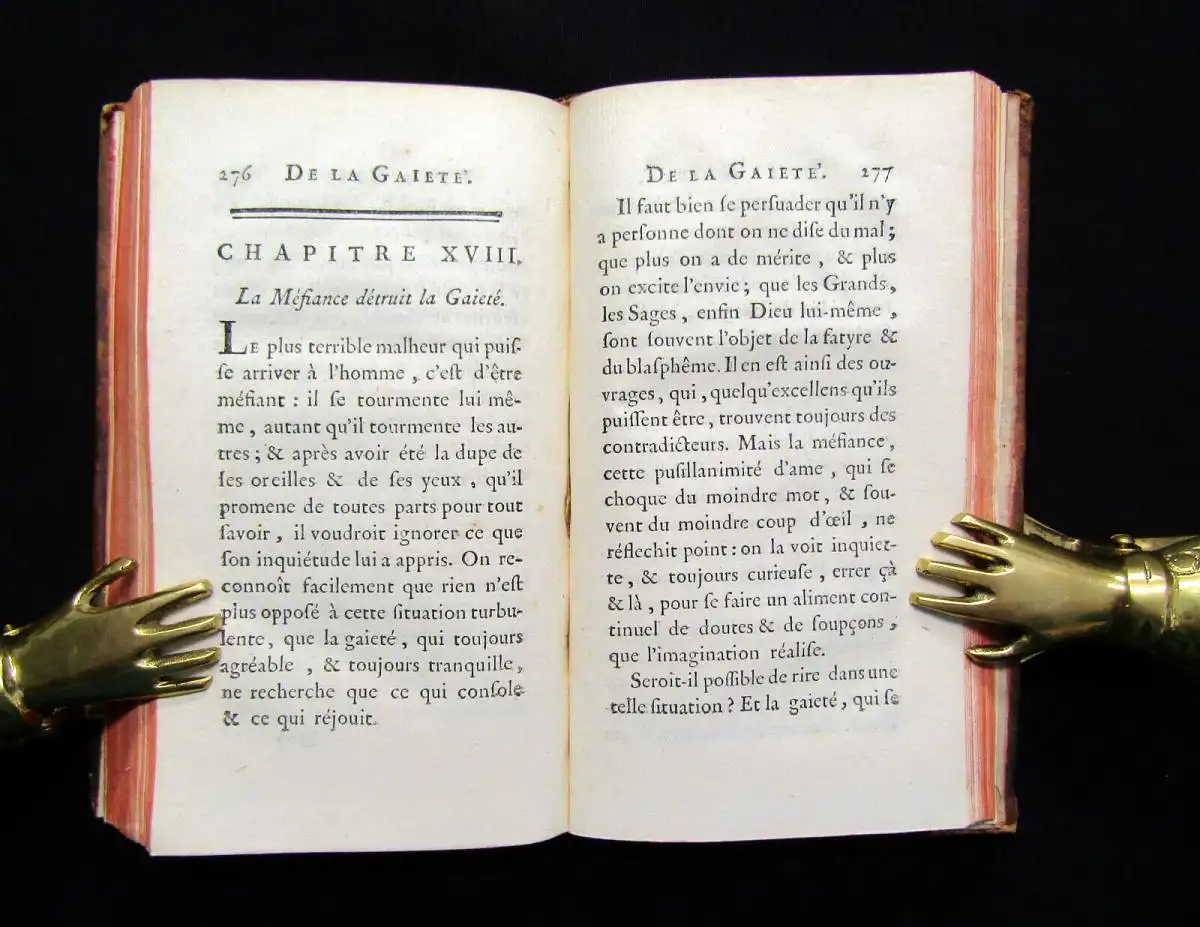 276 DE LA GAIETÉ.
CHAPITRE XVIII.
La Méfiance détruit la Gaieté.
LE plus terrible malheur qui puiſ-
ſe arriver à l'homme, c'eſt d'être
méfiant : il ſe tourmente lui mê-
me, autant qu'il tourmente les au-
tres ; & après avoir été la dupe de
ſes oreilles & de ſes yeux, qu'il
promene de toutes parts pour tout
ſavoir, il voudroit ignorer ce que
ſon inquiétude lui a appris. On re-
connoît facilement que rien n'eſt
plus oppoſé à cette ſituation turbu-
lente, que la gaieté, qui toujours
agréable, & toujours tranquille,
ne recherche que ce qui conſole
& ce qui réjouit.
DE LA GAIETÉ. 277
Il faut bien ſe perſuader qu'il n'y
a perſonne dont on ne diſe du mal ;
que plus on a de mérite, & plus
on excite l'envie ; que les Grands,
les Sages, enfin Dieu lui-même,
ſont ſouvent l'objet de la ſatyre &
du blaſphême. Il en eſt ainſi des ou-
vrages, qui, quelqu'excellens qu'ils
puiſſent être, trouvent toujours des
contradicteurs. Mais la méfiance,
cette puſillanimité d'ame, qui ſe
choque du moindre mot, & ſou-
vent du moindre coup d'œil, ne
réflechit point : on la voit inquiet-
te, & toujours curieuſe, errer çà
& là, pour ſe faire un aliment con-
tinuel de doutes & de ſoupçons,
que l'imagination réaliſe.
Seroit-il poſſible de rire dans une
telle ſituation ? Et la gaieté, qui ſe